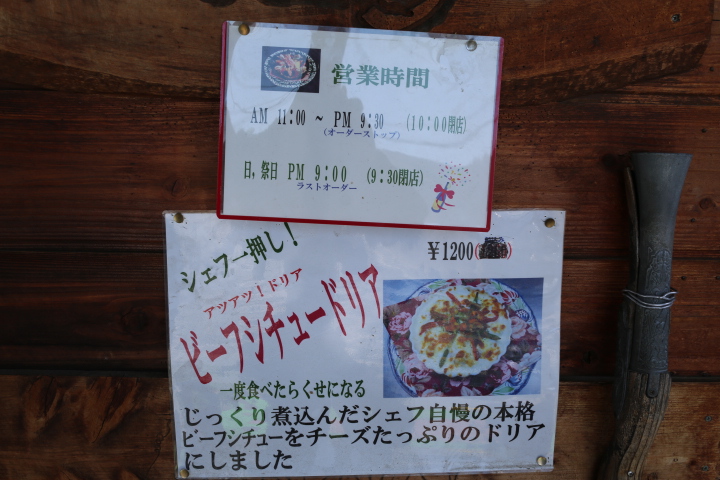 営業時間
AM 11:00 ~ PM 9:30 (10:00閉店)
(オーダーストップ)
日,祭日 PM 9:00 (9:30閉店)
ラストオーダー
シェフ一押し!
¥1200
アツアツ!ドリア
ビーフシチュードリア
一度食べたらくせになる
じっくり煮込んだシェフ自慢の本格
ビーフシチューをチーズたっぷりのドリア
にしました